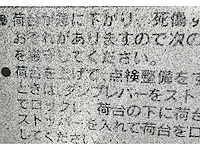 荷台が急に下がり、死傷
おそれがありますので次の
を守してください。
●荷台を上げて、点検整備をす
ときは、ダンプレバーをスト
でロックし、荷台の下に荷台
ストッパーを入れて荷台をロ
してください